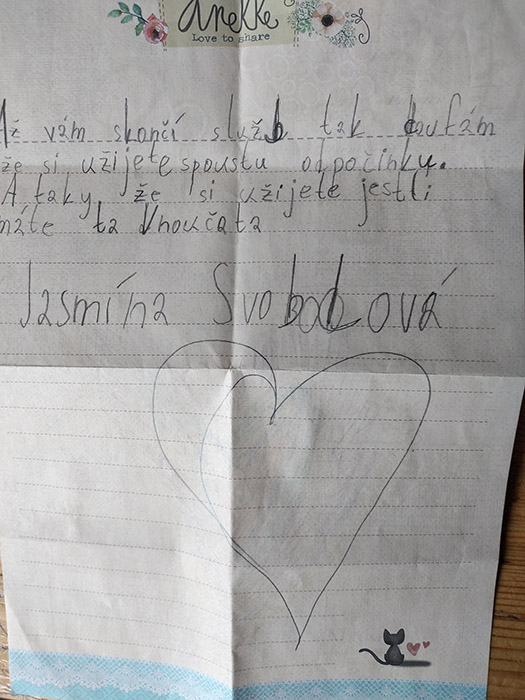 Anekke
Love to share
Až vám skončí služb tak doufám
že si užijete spoustu odpočinku.
A taky že si užijete jestli
máte ta Vnoučata
Jasmína Svobodová